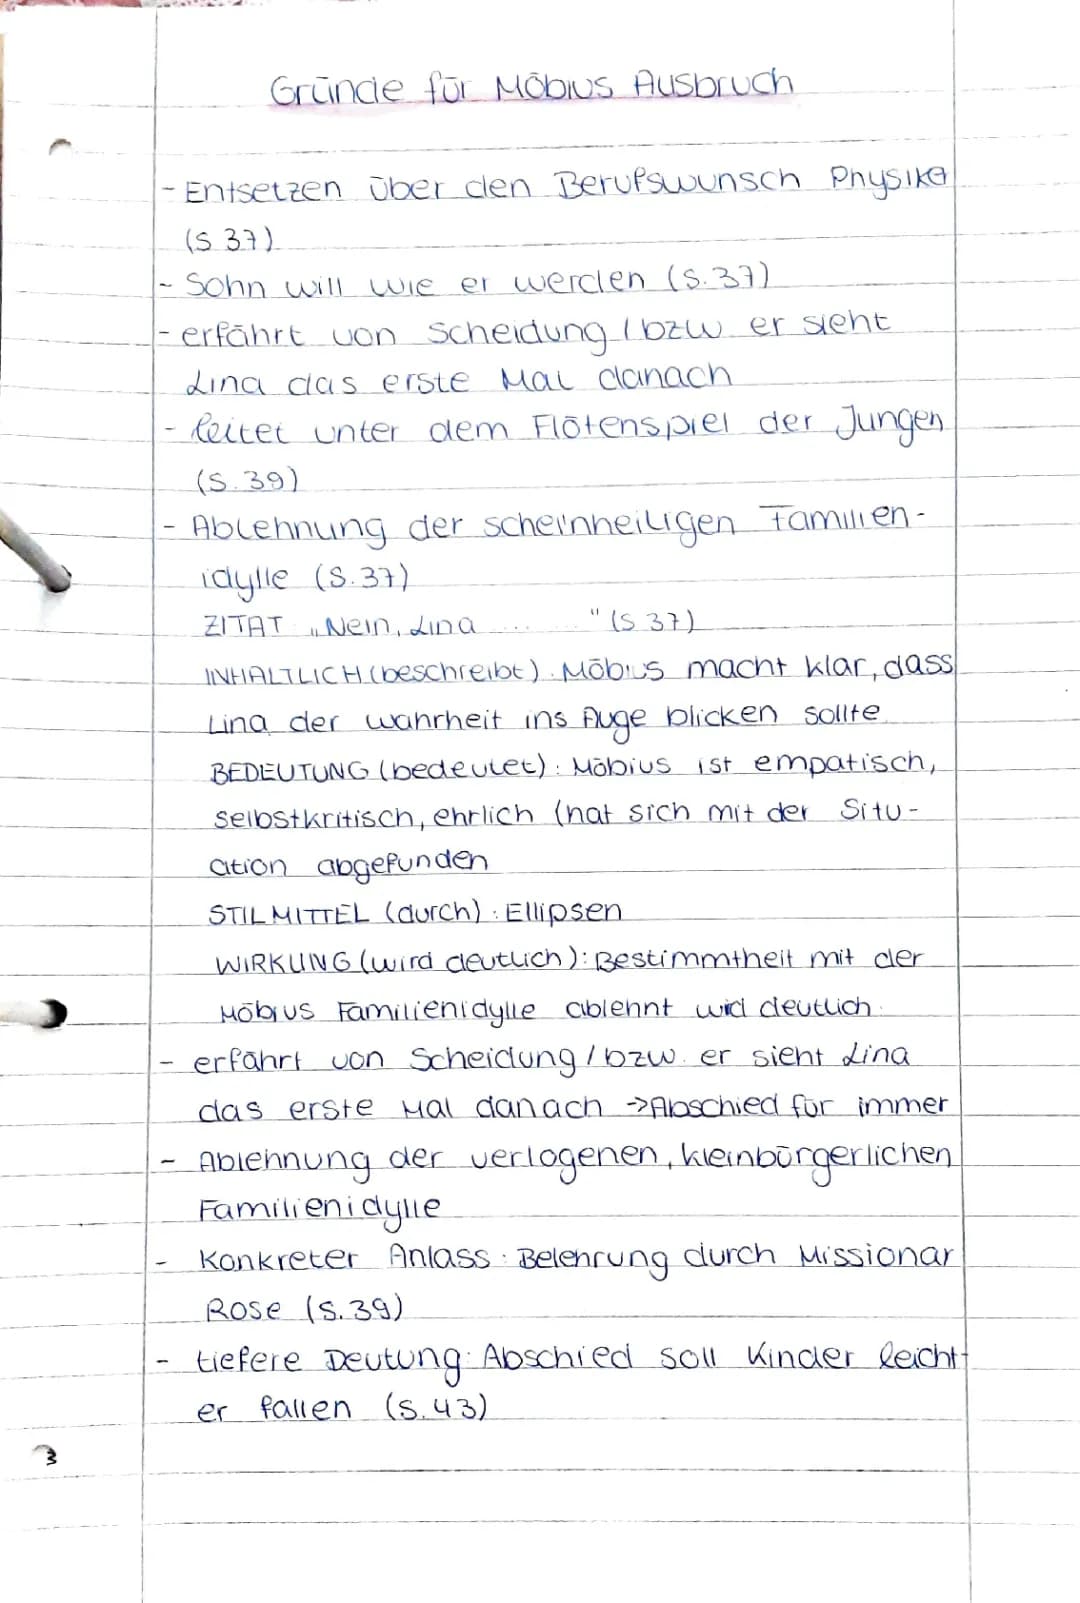 Gründe für Möbius Ausbruch
- Entsetzen über den Berufswunsch Physiker
(S 37)
- Sohn will wie er werden (S.37)
- erfährt von Scheidung / bzw er sieht
Lina das erste Mal danach
- leitet unter dem Flötenspiel der Jungen
(S.39)
- Ablehnung der scheinheiligen Familien-
idylle (S.37)
ZITAT „Nein, Lina ... ..." (S 37)
INHALTLICH (beschreibt). Möbius macht klar, dass
Lina der wahrheit ins Auge blicken sollte
BEDEUTUNG (bedeutet): Möbius ist empatisch,
selbstkritisch, ehrlich (hat sich mit der Situ-
ation abgefunden
STILMITTEL (durch): Ellipsen
WIRKUNG (wird deutlich): Bestimmtheit mit der
Möbius Familienidylle ablehnt wird deutlich.
- erfährt von Scheidung / bzw. er sieht Lina
das erste Mal danach → Abschied für immer
- Ablehnung der verlogenen, kleinbürgerlichen
Familienidylle
- Konkreter Anlass: Belehrung durch Missionar
Rose (S.39)
- tiefere Deutung: Abschied soll Kinder leicht-
er fallen (S.43)
3